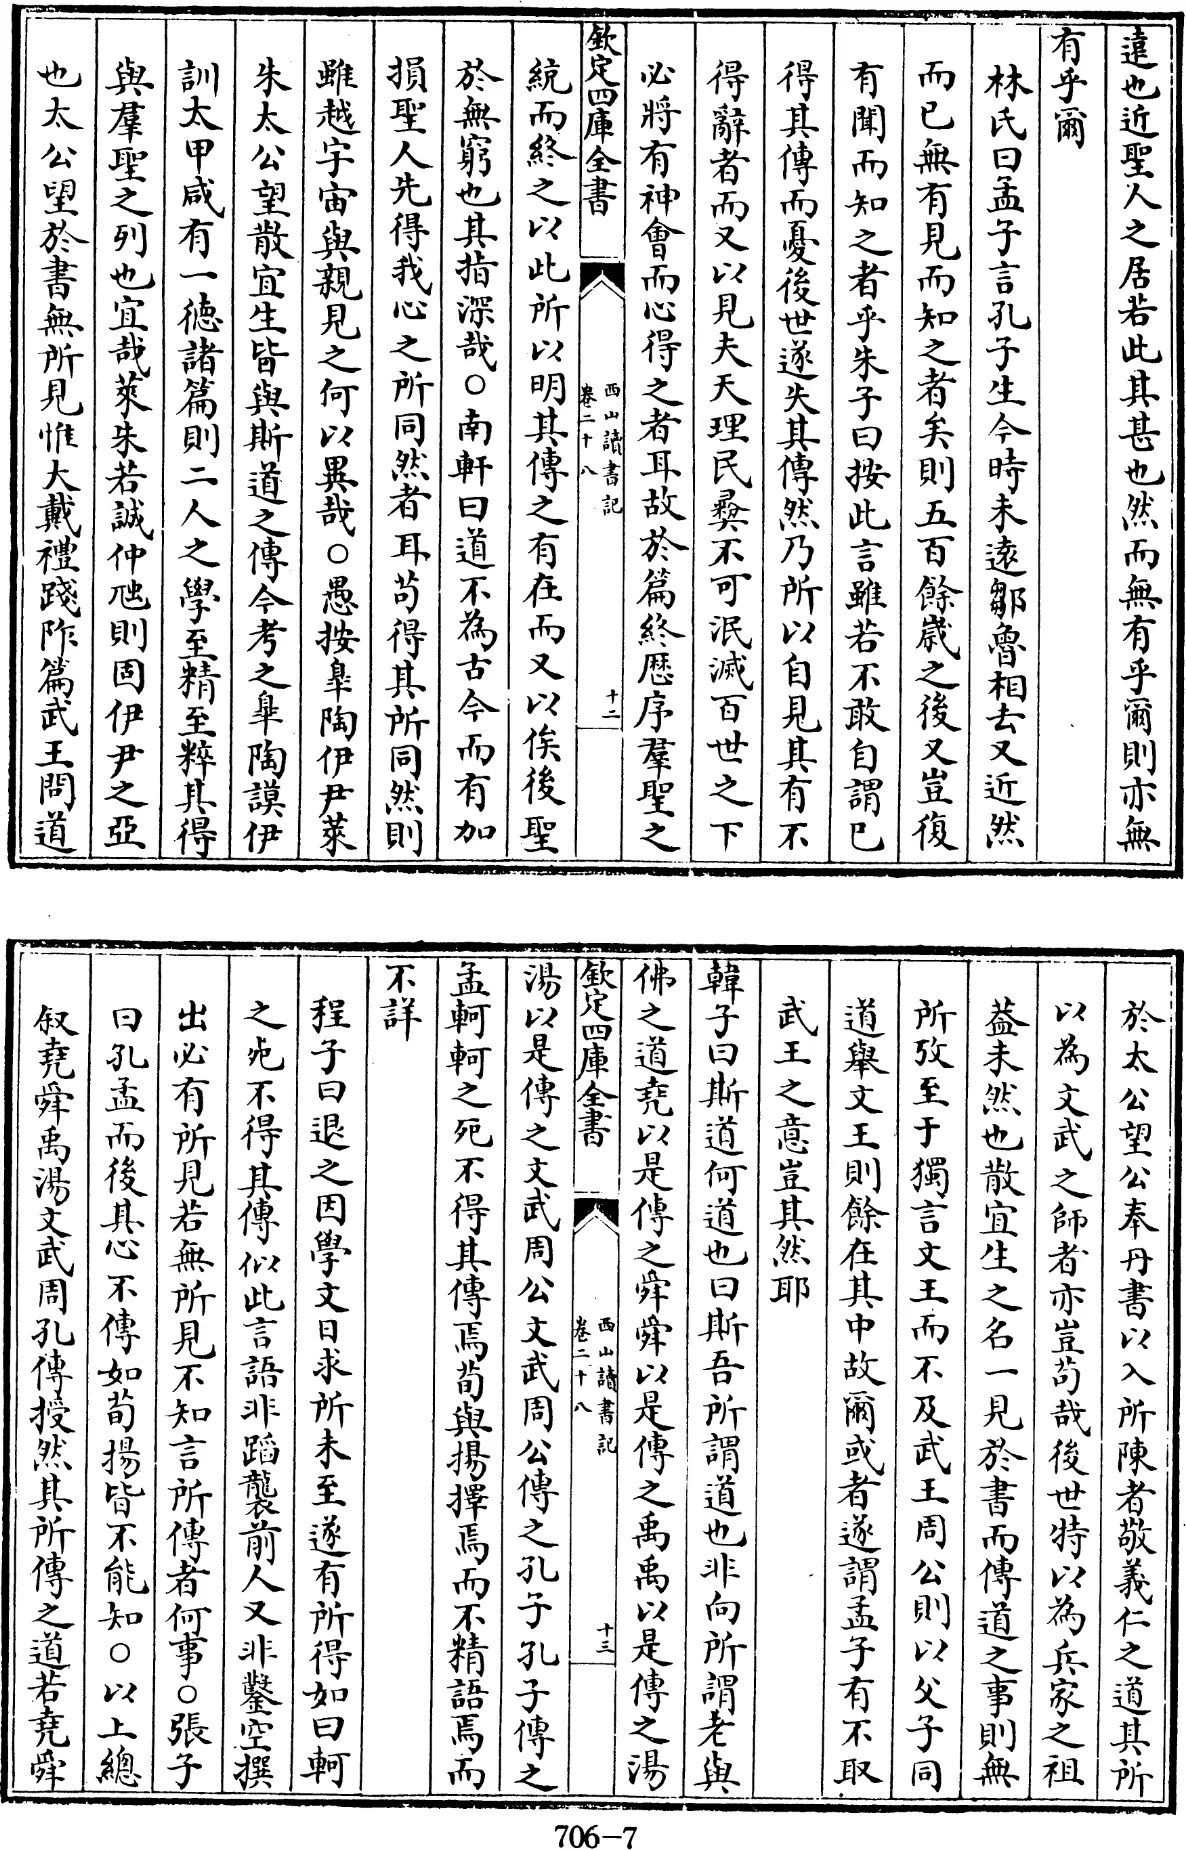 遠也近聖人之居若此其甚也然而無有乎爾則亦無
有乎爾
林氏曰孟子言孔子生今時未遠鄒魯相去又近然
而已無有見而知之者矣則五百餘歲之後又豈復
有聞而知之者乎朱子曰按此言雖若不敢自謂已
得其傳而憂後世遂失其傳然乃所以自見其有不
得辭者而又以見夫天理民彛不可泯滅百世之下
必將有神會而心得之者耳故於篇終歴序羣聖之
欽定四庫全書
西山讀書記
卷二十八
十二
統而終之以此所以明其傳之有在而又以俟後聖
於無窮也其指深哉○南軒曰道不為古今而有加
損聖人先得我心之所同然者耳苟得其所同然則
雖越宇宙與親見之何以異哉○愚按臯陶伊尹萊
朱太公望散宜生皆與斯道之傳今考之臯陶謨伊
訓太甲咸有一德諸篇則二人之學至精至粹其得
與羣聖之列也宜哉萊朱若誠仲虺則固伊尹之亞
也太公望於書無所見惟大戴禮踐阼篇武王問道
於太公望公奉丹書以入所陳者敬義仁之道其所
以為文武之師者亦豈苟哉後世特以為兵家之祖
葢未然也散宜生之名一見於書而傳道之事則無
所攷至于獨言文王而不及武王周公則以父子同
道舉文王則餘在其中故爾或者遂謂孟子有不取
武王之意豈其然耶
韓子曰斯道何道也曰斯吾所謂道也非向所謂老與
佛之道堯以是傳之舜舜以是傳之禹禹以是傳之湯
欽定四庫全書
西山讀書記
卷二十八
十三
湯以是傳之文武周公文武周公傳之孔子孔子傳之
孟軻軻之死不得其傳焉荀與揚擇焉而不精語焉而
不詳
程子曰退之因學文日求所未至遂有所得如曰軻
之死不得其傳似此言語非蹈襲前人又非鑿空撰
出必有所見若無所見不知言所傳者何事○張子
曰孔孟而後其心不傳如荀揚皆不能知○以上總
叙堯舜禹湯文武周孔傳授然其所傳之道若堯舜
706-7